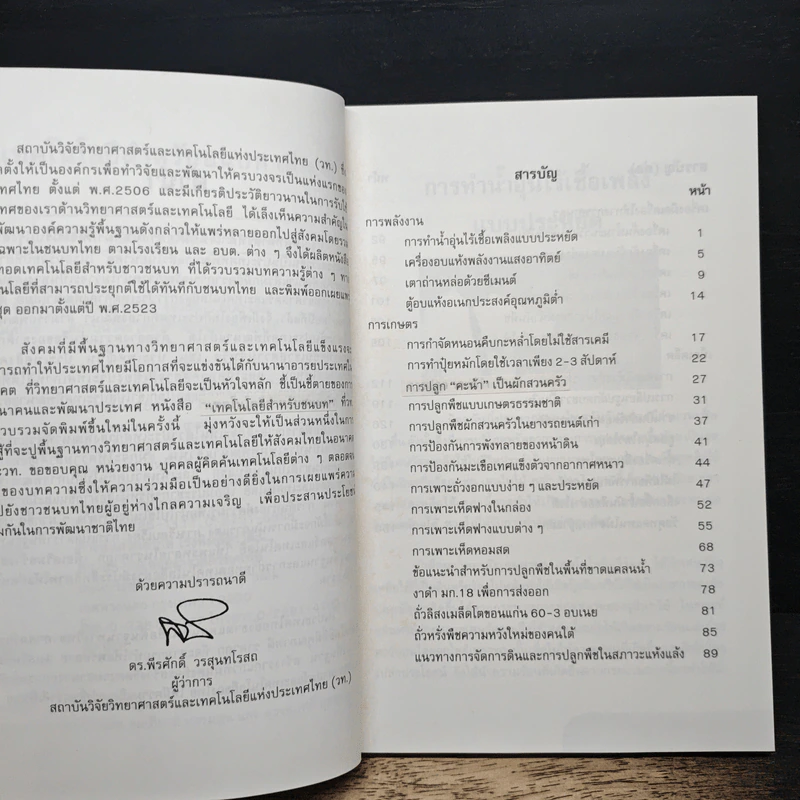 สถาบันวิจัยวิทยาศาสตร์และเทคโนโลยีแห่งประเทศไทย (วท.)
ตั้งให้เป็นองค์กรเพื่อทำวิจัยและพัฒนาให้ครบวงจรเป็นแห่งแรกของ
ตั้งแต่ พ.ศ.2506 และมีเกียรติประวัติยาวนานในการ
ของเราด้านวิทยาศาสตร์และเทคโนโลยี ได้เล็งเห็นความสำคัญ
พัฒนาองค์ความรู้พื้นฐานดังกล่าวให้แพร่หลายออกไปสู่สังคม
ในชนบทไทย ตามโรงเรียน และ อบต. ต่าง ๆ จึงได้ผลิต
เทคโนโลยีสำหรับชาวชนบท ที่ได้รวบรวมบทความรู้ต่าง ๆ
ที่สามารถประยุกต์ใช้ได้ทันทีกับชนบทไทย และพิมพ์ออก
ออกมาตั้งแต่ปี พ.ศ.2523
สังคมที่มีพื้นฐานทางวิทยาศาสตร์และเทคโนโลยีแข็งแรง
ทำให้ประเทศไทยมีโอกาสที่จะแข่งขันได้กับนานาอารยประเทศ
ที่วิทยาศาสตร์และเทคโนโลยีจะเป็นหัวใจหลัก ชี้เป็นชี้ตายของ
และพัฒนาประเทศ หนังสือ "เทคโนโลยีสำหรับชนบท"
รวบรวมจัดพิมพ์ขึ้นใหม่ในครั้งนี้ มุ่งหวังจะให้เป็นส่วนหนึ่งในการ
ที่จะปูพื้นฐานทางวิทยาศาสตร์และเทคโนโลยีให้สังคมไทยในอนาคต
วท. ขอขอบคุณ หน่วยงาน บุคคลผู้คิดค้นเทคโนโลยีต่าง ๆ ตลอด
ของบทความซึ่งให้ความร่วมมือเป็นอย่างดียิ่งในการเผยแพร่ความ
ยังชาวชนบทไทยผู้อยู่ห่างไกลความเจริญ เพื่อประสานประโยชน์
กันในการพัฒนาชาติไทย
ด้วยความปรารถนาดี
ดร.พีรศักดิ์ วรสุนทโรสถ
ผู้ว่าการ
สถาบันวิจัยวิทยาศาสตร์และเทคโนโลยีแห่งประเทศไทย (วท.)
สารบัญ
หน้า
การพลังงาน
การทำน้ำอุ่นไร้เชื้อเพลิงแบบประหยัด 1
เครื่องอบแห้งพลังงานแสงอาทิตย์ 5
เตาถ่านหล่อด้วยซีเมนต์ 9
ตู้อบแห้งอเนกประสงค์อุณหภูมิต่ำ 14
การเกษตร
การกำจัดหนอนคืบกะหล่ำโดยไม่ใช้สารเคมี 17
การทำปุ๋ยหมักโดยใช้เวลาเพียง 2-3 สัปดาห์ 22
การปลูก "คะน้า" เป็นผักสวนครัว 27
การปลูกพืชแบบเกษตรธรรมชาติ 31
การปลูกพืชผักสวนครัวในยางรถยนต์เก่า 37
การป้องกันการพังทลายของหน้าดิน 41
การป้องกันมะเขือเทศแข็งตัวจากอากาศหนาว 44
การเพาะถั่วงอกแบบง่าย ๆ และประหยัด 47
การเพาะเห็ดฟางในกล่อง 52
การเพาะเห็ดฟางแบบต่าง ๆ 55
การเพาะเห็ดหอมสด 68
ข้อแนะนำสำหรับการปลูกพืชในพื้นที่ขาดแคลนน้ำ 73
งาดำ มก.18 เพื่อการส่งออก 78
ถั่วลิสงเมล็ดโตขอนแก่น 60-3 อบเนย 81
ถั่วหรั่งพืชความหวังใหม่ของคนใต้ 85
แนวทางการจัดการดินและการปลูกพืชในสภาวะแห้งแล้ง 89